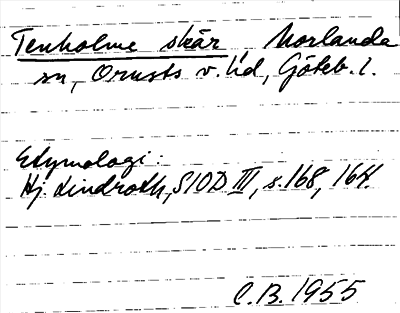 Tenholme skär, Morlanda
sn, Orusts v. hd, Göteb. l.
Etymologi:
Hj. Lindroth, SIOD III, s. 168, 164.
C.B. 1955